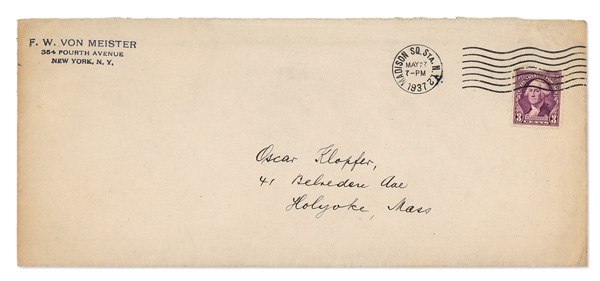 F. W. VON MEISTER
354 FOURTH AVENUE
NEW YORK, N. Y.
MADISON SQ. STA. N.Y. 2
MAY 27
7-PM
1937
3 3
CENTS
Oscar Klopfer,
41 Belvedere Ave
Holyoke, Mass